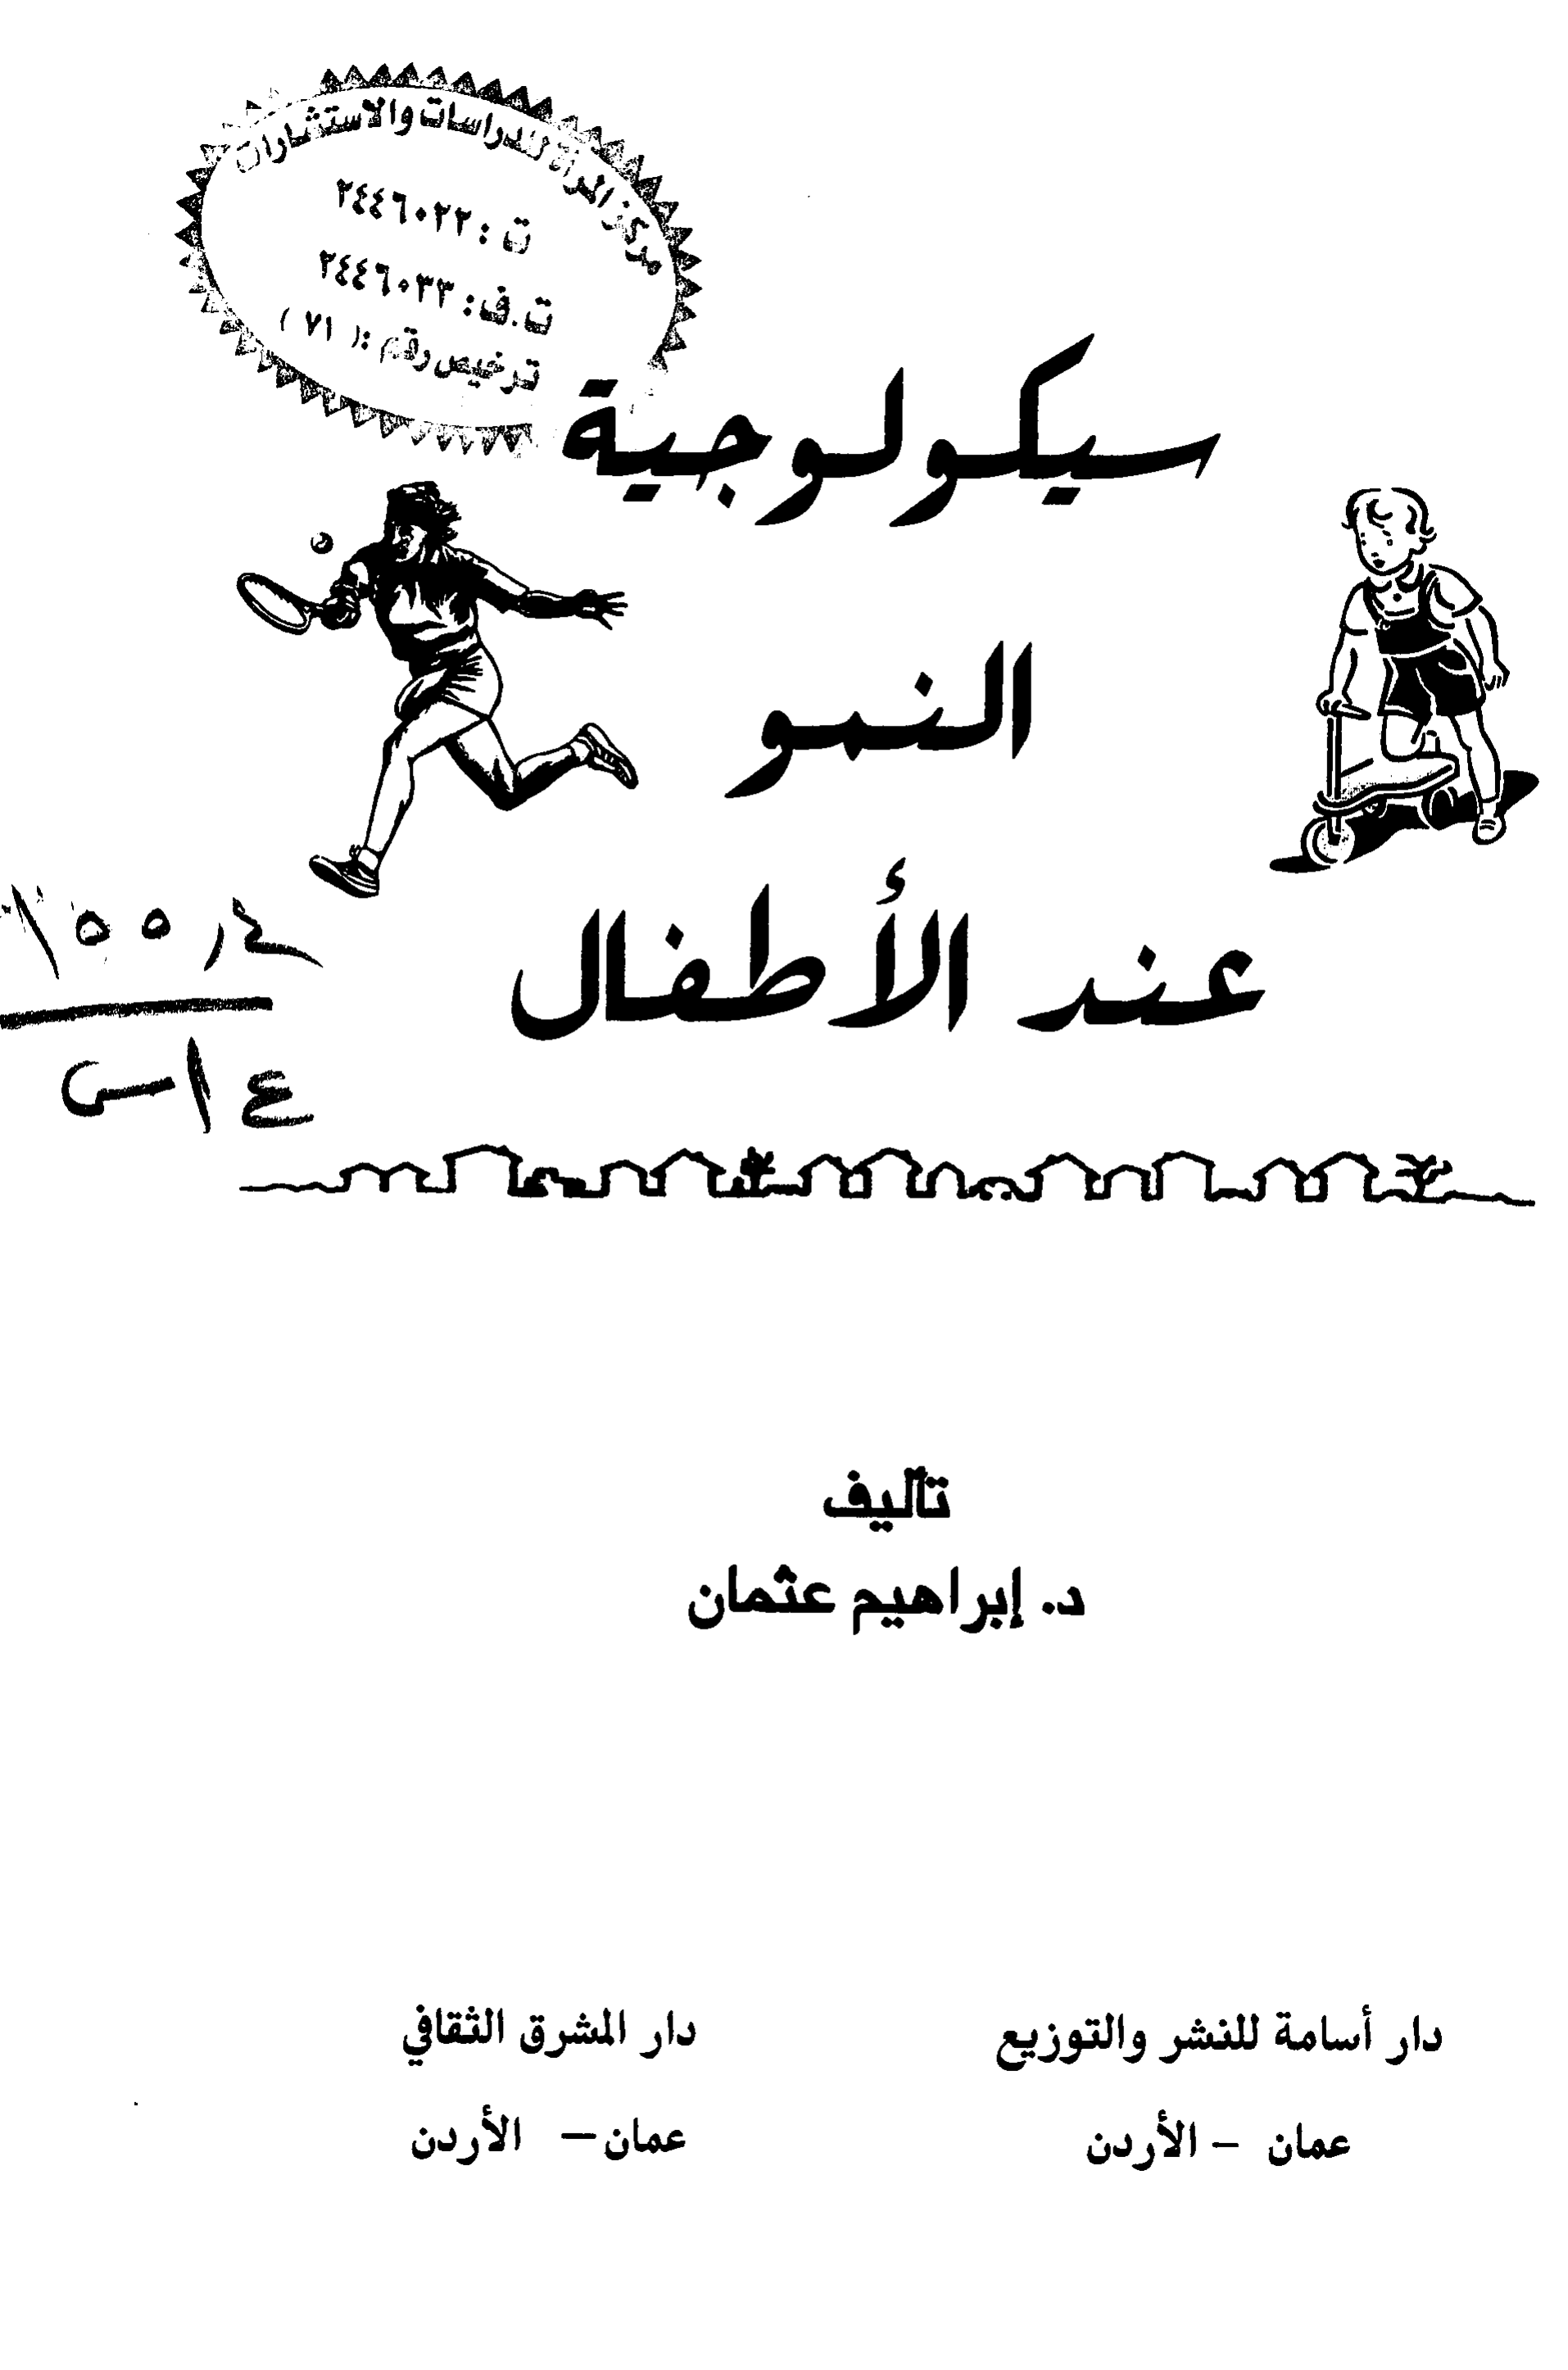 مركز المرأة للدراسات والاستشارات
ت : ٢٤٤٦٠٢٢
ت.ف: ٢٤٤٦٠٣٣
ترخيص رقم :( ٧١ )
سيكولوجية
النمو
عند الأطفال
١٥٥ر٤
ع ا س
تأليف
د. إبراهيم عثمان
دار أسامة للنشر والتوزيع
عمان – الأردن
دار المشرق الثقافي
عمان – الأردن